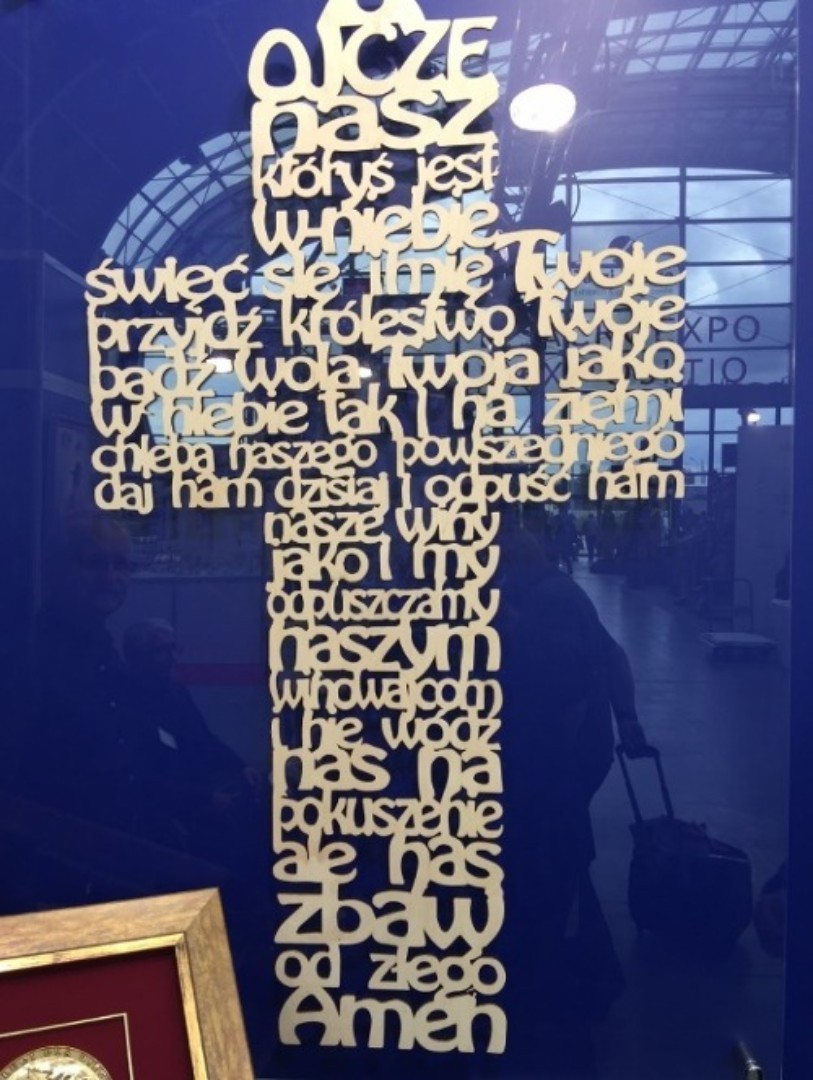 OJCZE
nasz
któryś jest
w niebie
święć się imię Twoje
przyjdź królestwo Twoje
bądź wola Twoja jako
w niebie tak i na ziemi
chleba naszego powszedniego
daj nam dzisiaj i odpuść nam
nasze winy
jako i my
odpuszczamy
naszym
winowajcom
i nie wódź
nas na
pokuszenie
ale nas
zbaw
od złego
Amen
XPO